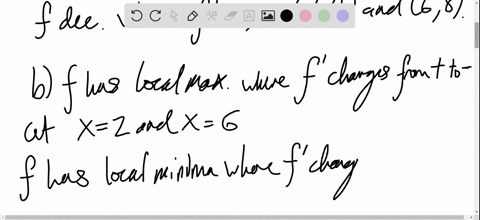 f dec. and (6,8).
b) f has local max. where f' changes from + to -
at x=2 and x=6
f has local minima where f' chang